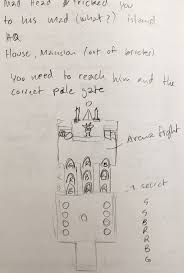 Mad Head tricked you
to his mad (what?) island
HQ
House, Mansion (out of bricks)
You need to reach him and the
correct pale gate
Arena fight
secret
G
S
B
R
R
B
G